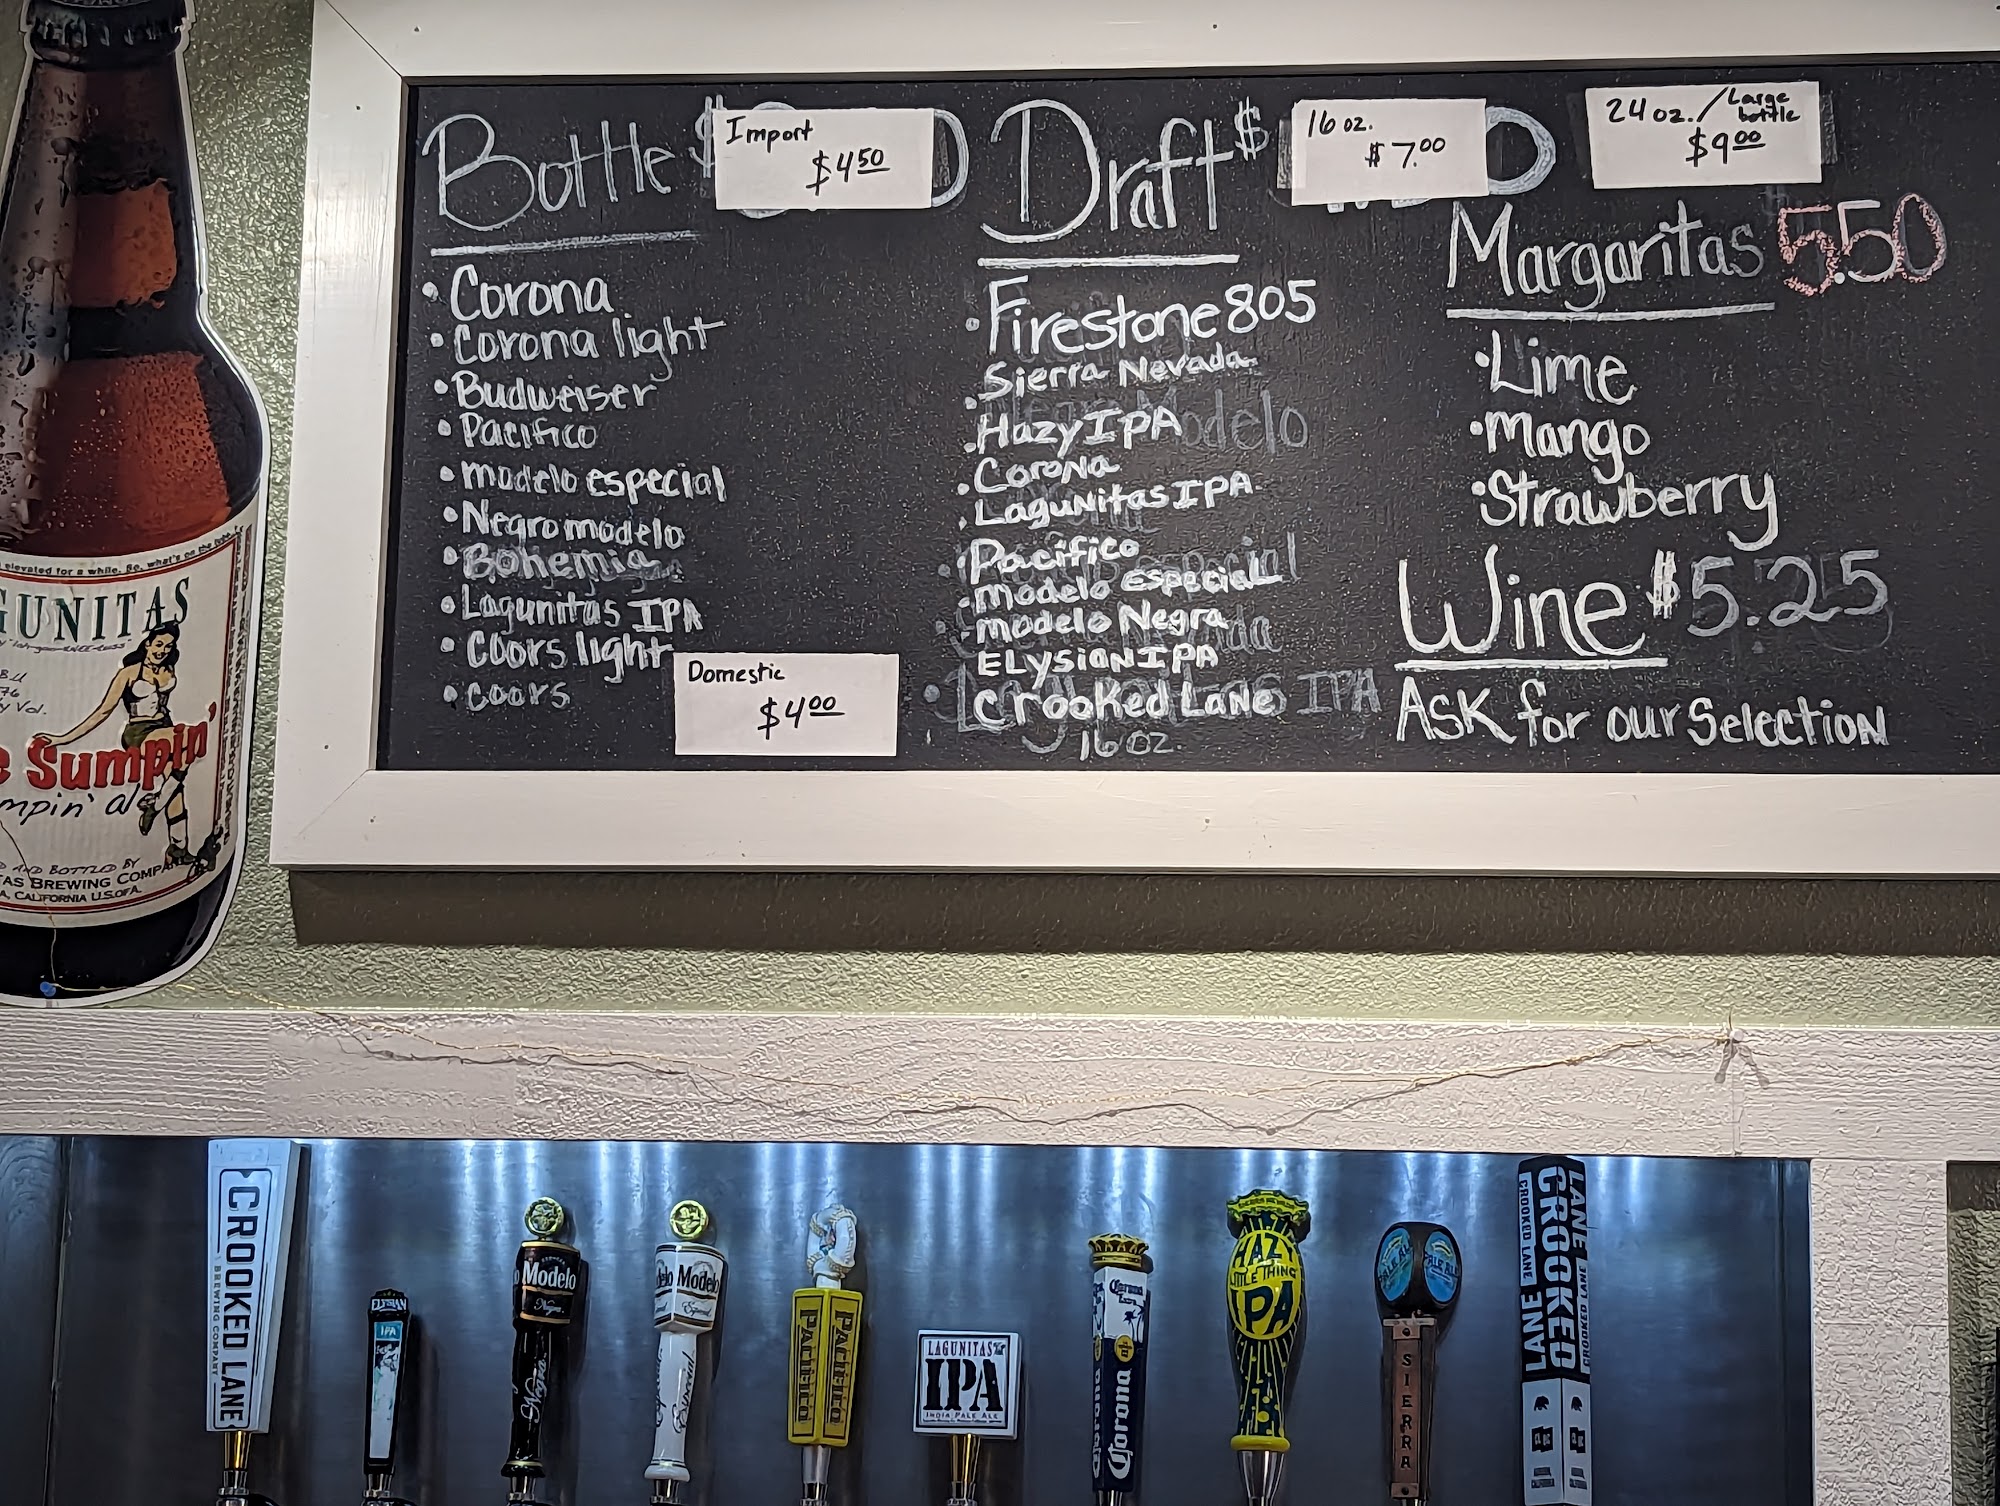 Bottle $
Import
$4.50
• Corona
• Corona light
• Budweiser
• Pacifico
• modelo especial
• Negro modelo
• Bohemia
• Lagunitas IPA
• Coors light
• coors
Domestic
$4.00
Draft $
16 oz.
$7.00
24 oz. / Large bottle
$9.00
• Firestone 805
• Sierra Nevada
• Hazy IPA
• Corona
• Lagunitas IPA
• Pacifico
• modelo Especial
• modelo Negra
ELysian IPA
• Crooked Lane
16 oz.
Margaritas 5.50
• Lime
• Mango
• Strawberry
Wine $5.25
Ask for our Selection
elevated for a while. So, what's on the
GUNITAS
Sumpin'
mpin' ale
AND BOTTLED BY
TAS BREWING COMPA
A, CALIFORNIA U.S.OF A.
CROOKED LANE
BREWING COMPANY
ELYSIAN
IPA
Modelo
Negra
Negra
Modelo
Especial
Especial
PACIFICO
PACIFICO
LAGUNITAS
IPA
INDIA PALE ALE
Corona
Extra
Corona
HAZY
LITTLE THING
IPA
PALE ALE
PALE ALE
SIERRA
LANE
CROOKED
CROOKED LANE
LANE
CROOKED
CROOKED LANE